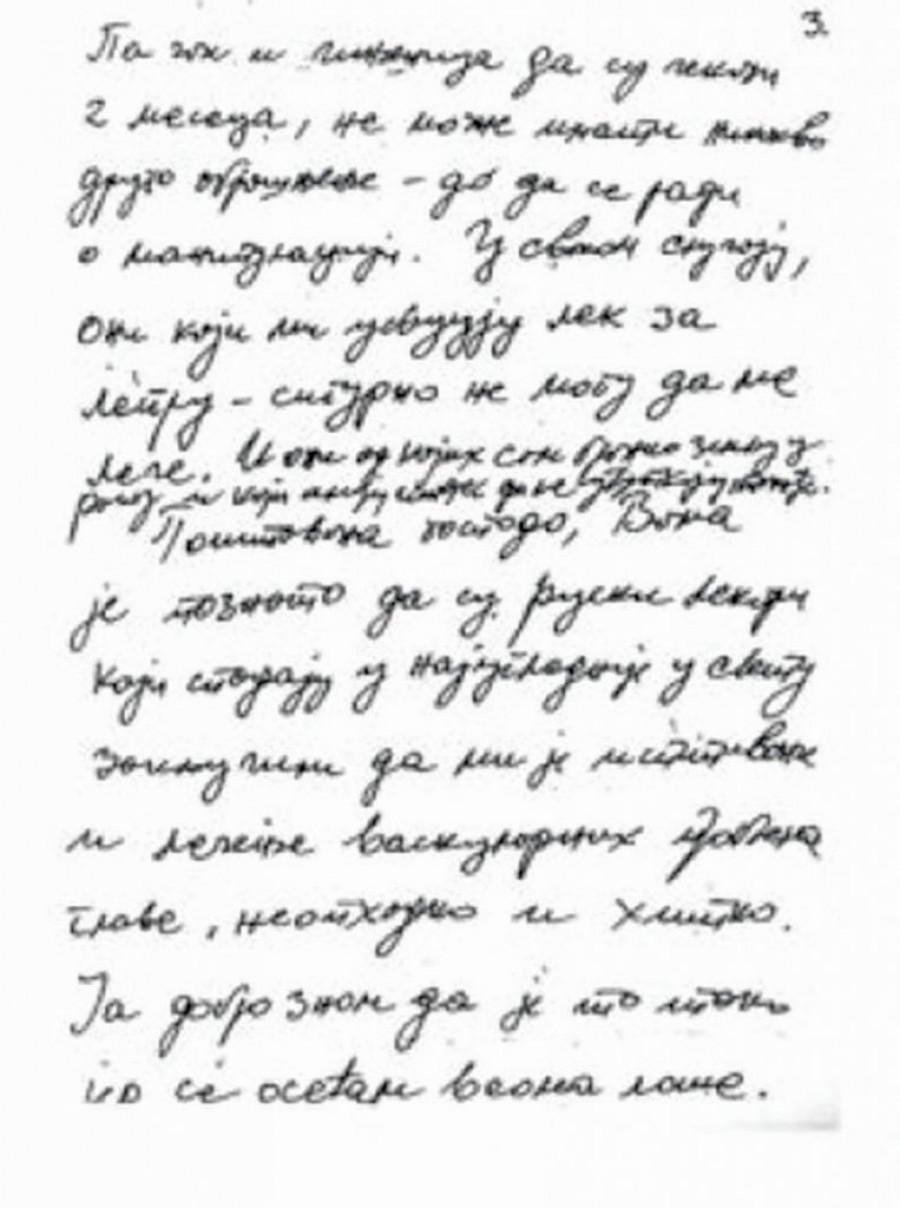 3.
Па чак и чињеница да су чекали
2 месеца, не може имати никакво
друго објашњење - до да се ради
о манипулацији. У сваком случају,
они који ми увуцују лек за
лепру - сигурно не могу да ме
лече. И они од којих сам бранио земљу у
рату и који
Поштована господо, Вама
је познато да су руски лекари
који спадају у најугледније у свету
закључили да ми је испитивање
и лечење васкуларних проблема
главе, неопходно и хитно.
Ја добро знам да је то тако
јер се осећам веома лоше.